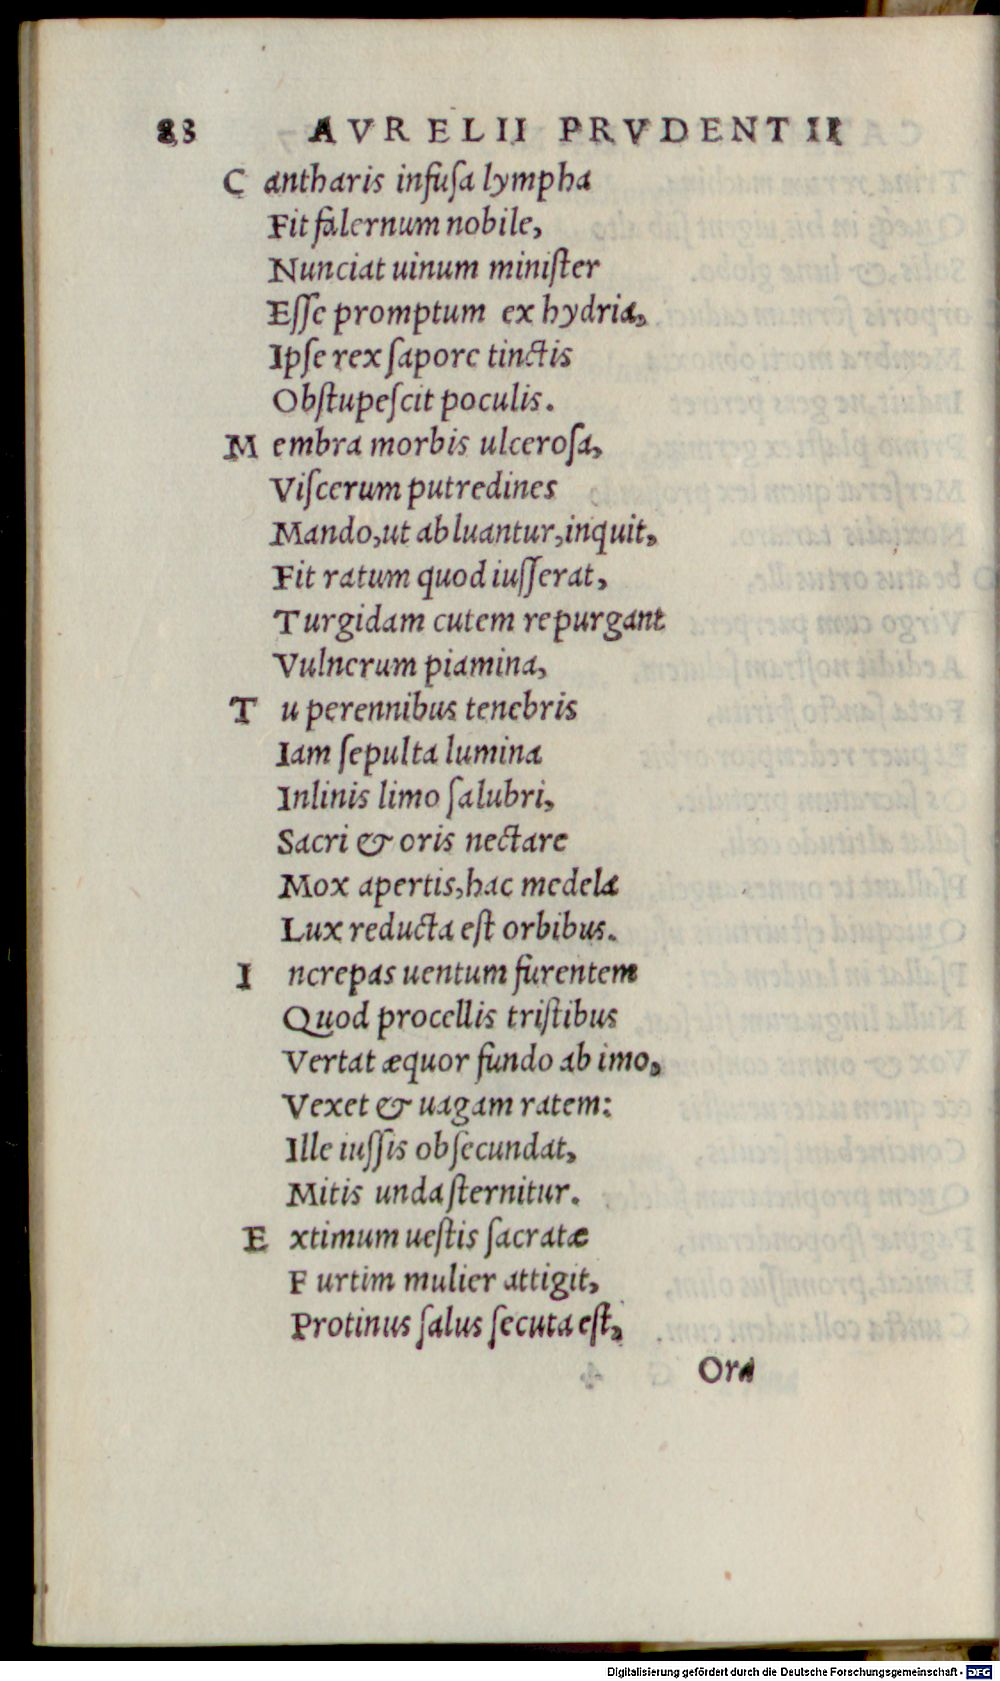 83 AVRELII PRVDENTII
C antharis infuſa lympha
Fit falernum nobile,
Nunciat uinum miniſter
Eſſe promptum ex hydria,
Ipſe rex ſapore tinctis
Obſtupeſcit poculis.
M embra morbis ulceroſa,
Viſcerum putredines
Mando, ut abluantur, inquit,
Fit ratum quod iuſſerat,
Turgidam cutem repurgant
Vulnerum piamina,
T u perennibus tenebris
Iam ſepulta lumina
Inlinis limo ſalubri,
Sacri & oris nectare
Mox apertis, hac medela
Lux reducta eſt orbibus.
I ncrepas uentum furentem
Quod procellis triſtibus
Vertat æquor fundo ab imo,
Vexet & uagam ratem:
Ille iuſſis obſecundat,
Mitis unda ſternitur.
E xtimum ueſtis ſacratæ
Furtim mulier attigit,
Protinus ſalus ſecuta eſt,
Ora
Digitalisierung gefördert durch die Deutsche Forschungsgemeinschaft - DFG